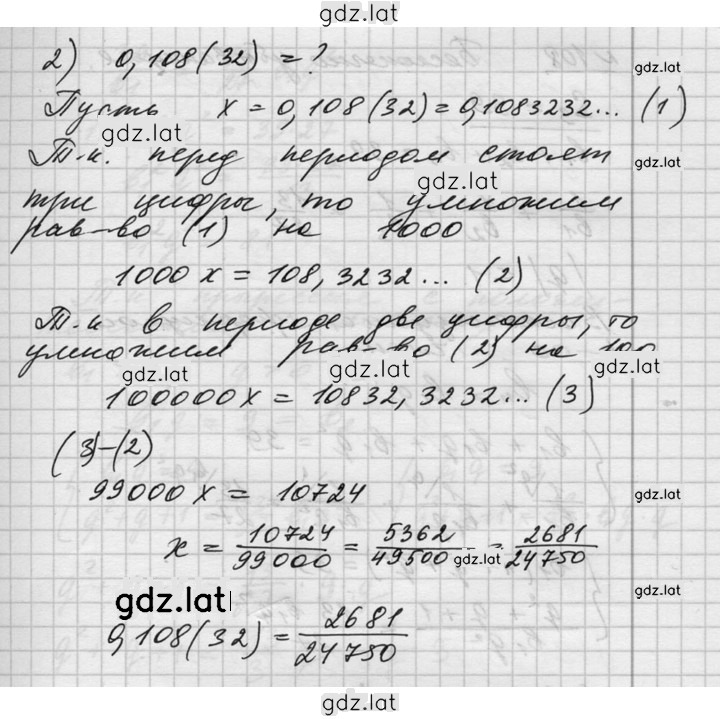 gdz.lat
2) 0,108(32) = ?
gdz.lat
Пусть x = 0,108(32) = 0,1083232... (1)
gdz.lat
Т.к. перед периодом стоят
gdz.lat
gdz.lat
три цифры, то умножим
рав-во (1) на 1000
1000x = 108,3232... (2)
gdz.lat
Т.к в периоде две цифры, то
gdz.lat
умножим рав-во (2) на 100
gdz.lat
gdz.lat
100000x = 10832,3232... (3)
(3)-(2)
99000x = 10724
gdz.lat
x = 10724/99000 = 5362/49500 = 2681/24750
gdz.lat
gdz.lat
gdz.lat
0,108(32) = 2681/24750
gdz.lat
gdz.lat